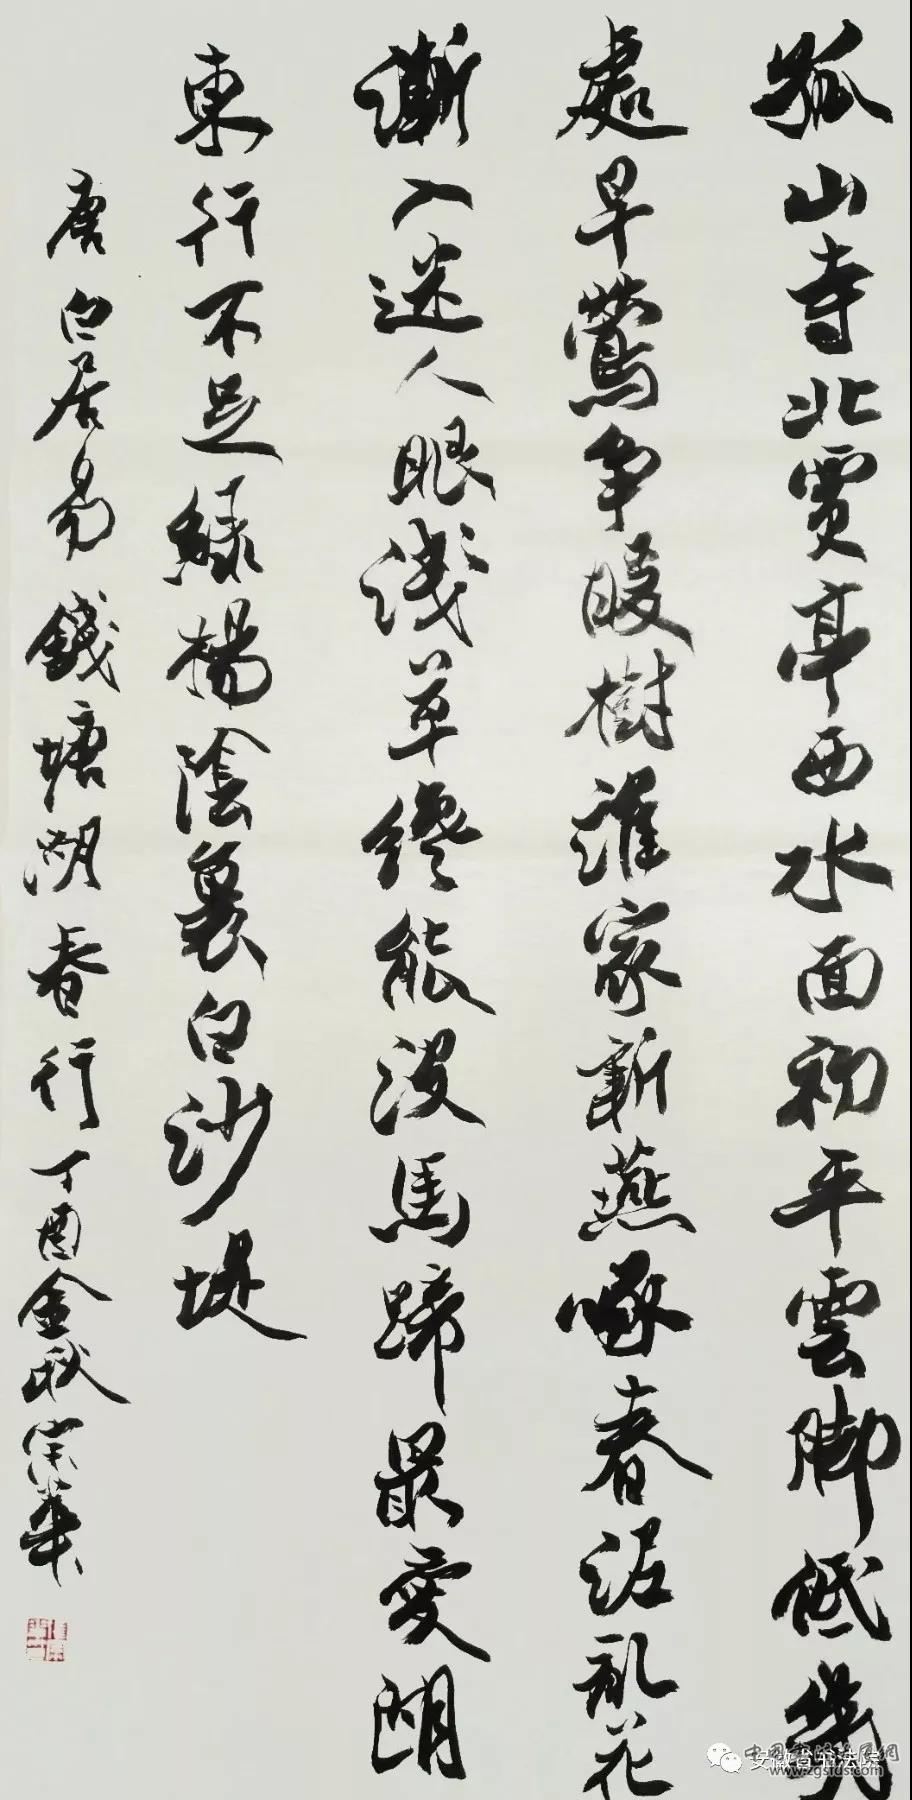 孤山寺北賈亭西水面初平雲脚低幾
處早鶯争暖樹誰家新燕啄春泥亂花
漸入迷人眼淺草纔能没馬蹄最愛湖
東行不足綠楊陰裏白沙堤
唐白居易錢塘湖春行丁酉金秋宗華
安徽省书法院
www.zgsfds.com